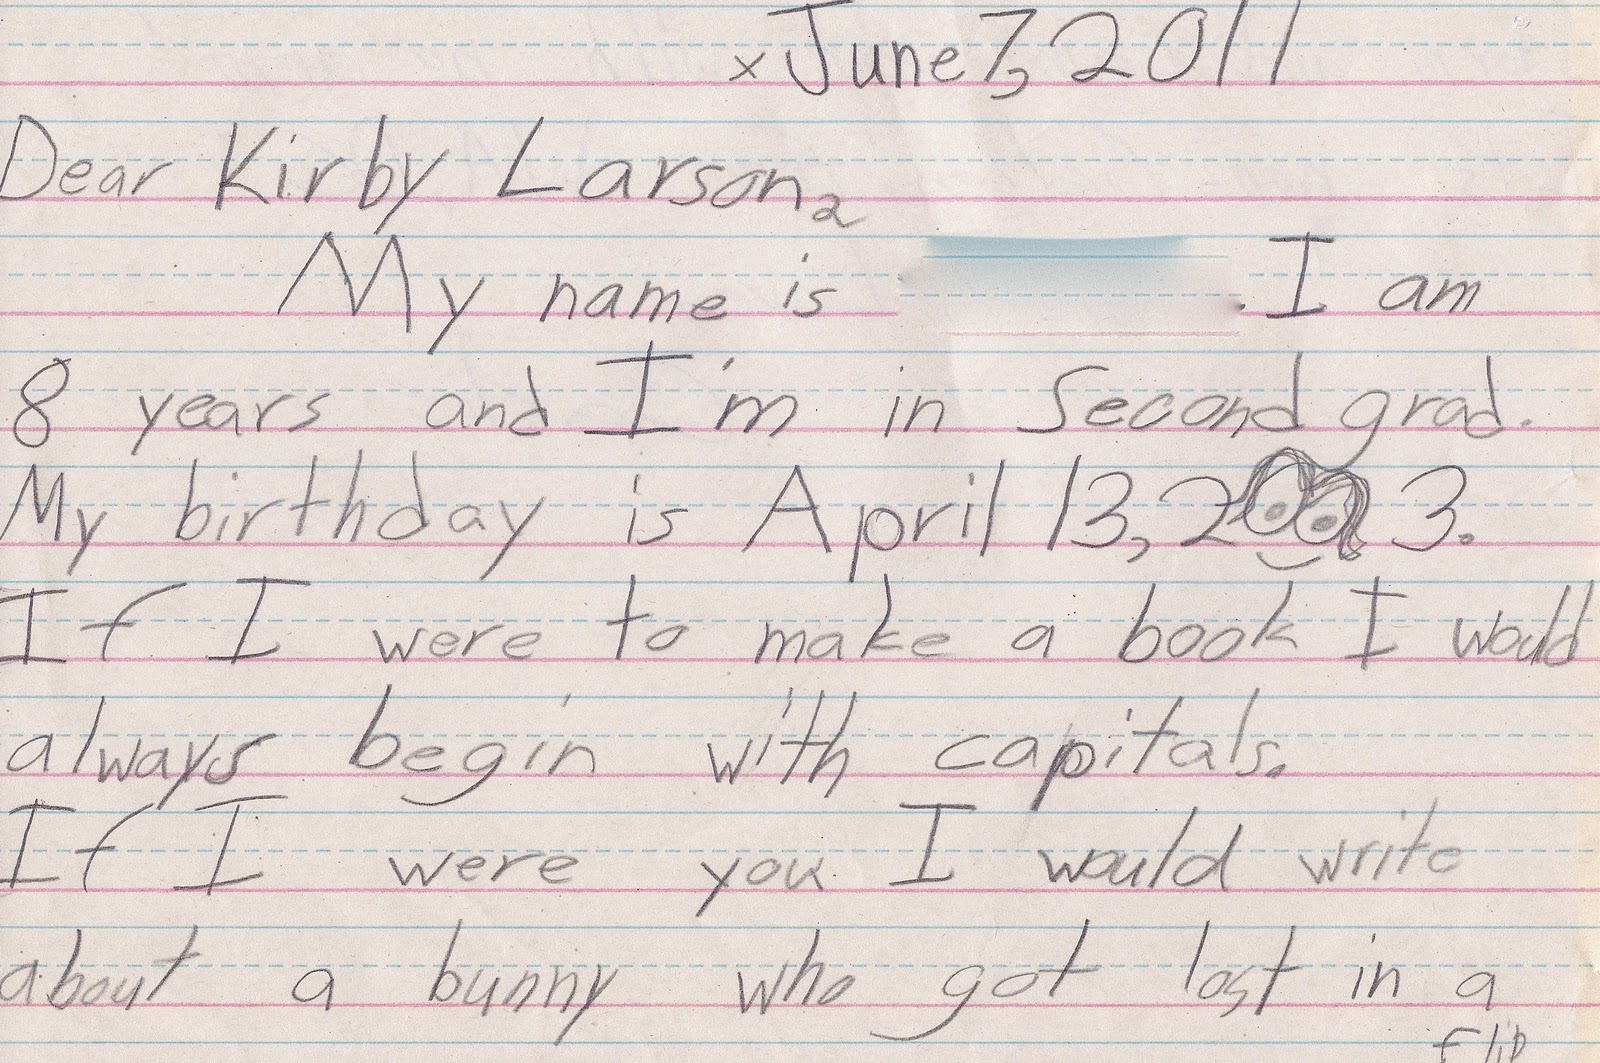 x June 7, 2011
Dear Kirby Larson,
My name is . I am
8 years and I'm in Second grad.
My birthday is April 13, 2003.
If I were to make a book I would
always begin with capitals.
If I were you I would write
about a bunny who got lost in a
flip